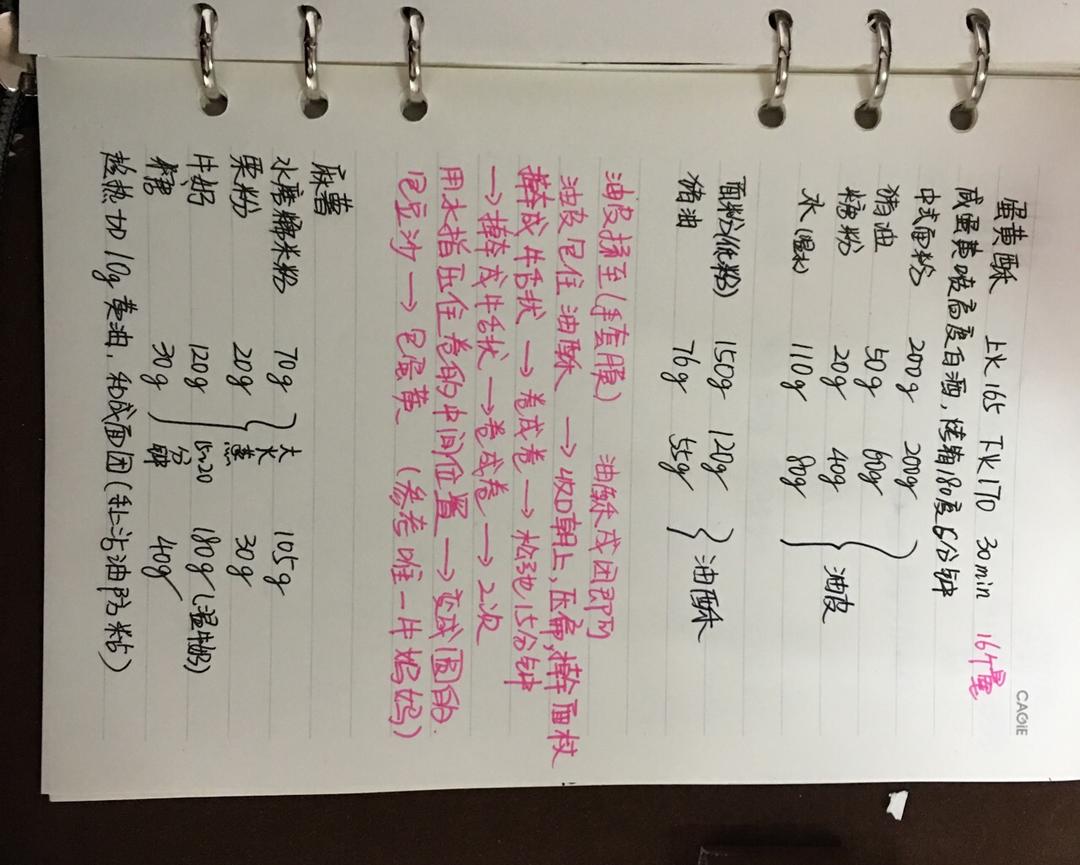 CAGIE
蛋黄酥 上火165 下火170 30min 16个量
咸蛋黄喷高度白酒,烤箱180度5分钟
中式面粉 200g 200g
猪油 50g 60g
糖粉 20g 40g
水(温水) 110g 80g
油皮
面粉(低粉) 150g 120g
猪油 76g 55g
油酥
油皮揉至(手套膜) 油酥成团即可
油皮包住油酥 → 收口朝上,压扁,擀面杖
擀成牛舌状 → 卷成卷 → 松弛15分钟
→ 擀成牛舌状 → 卷成卷 → 2次
用水指压住卷的中间位置 → 变成圆的.
包豆沙 → 包蛋黄 (参考唯一片妈妈)
麻薯
水磨糯米粉 70g 105g
粟粉 20g 30g
牛奶 120g 180g(温牛奶)
糖 30g 40g
大火蒸15-20分钟
趁热加10g黄油,和成面团(手上沾油防粘)